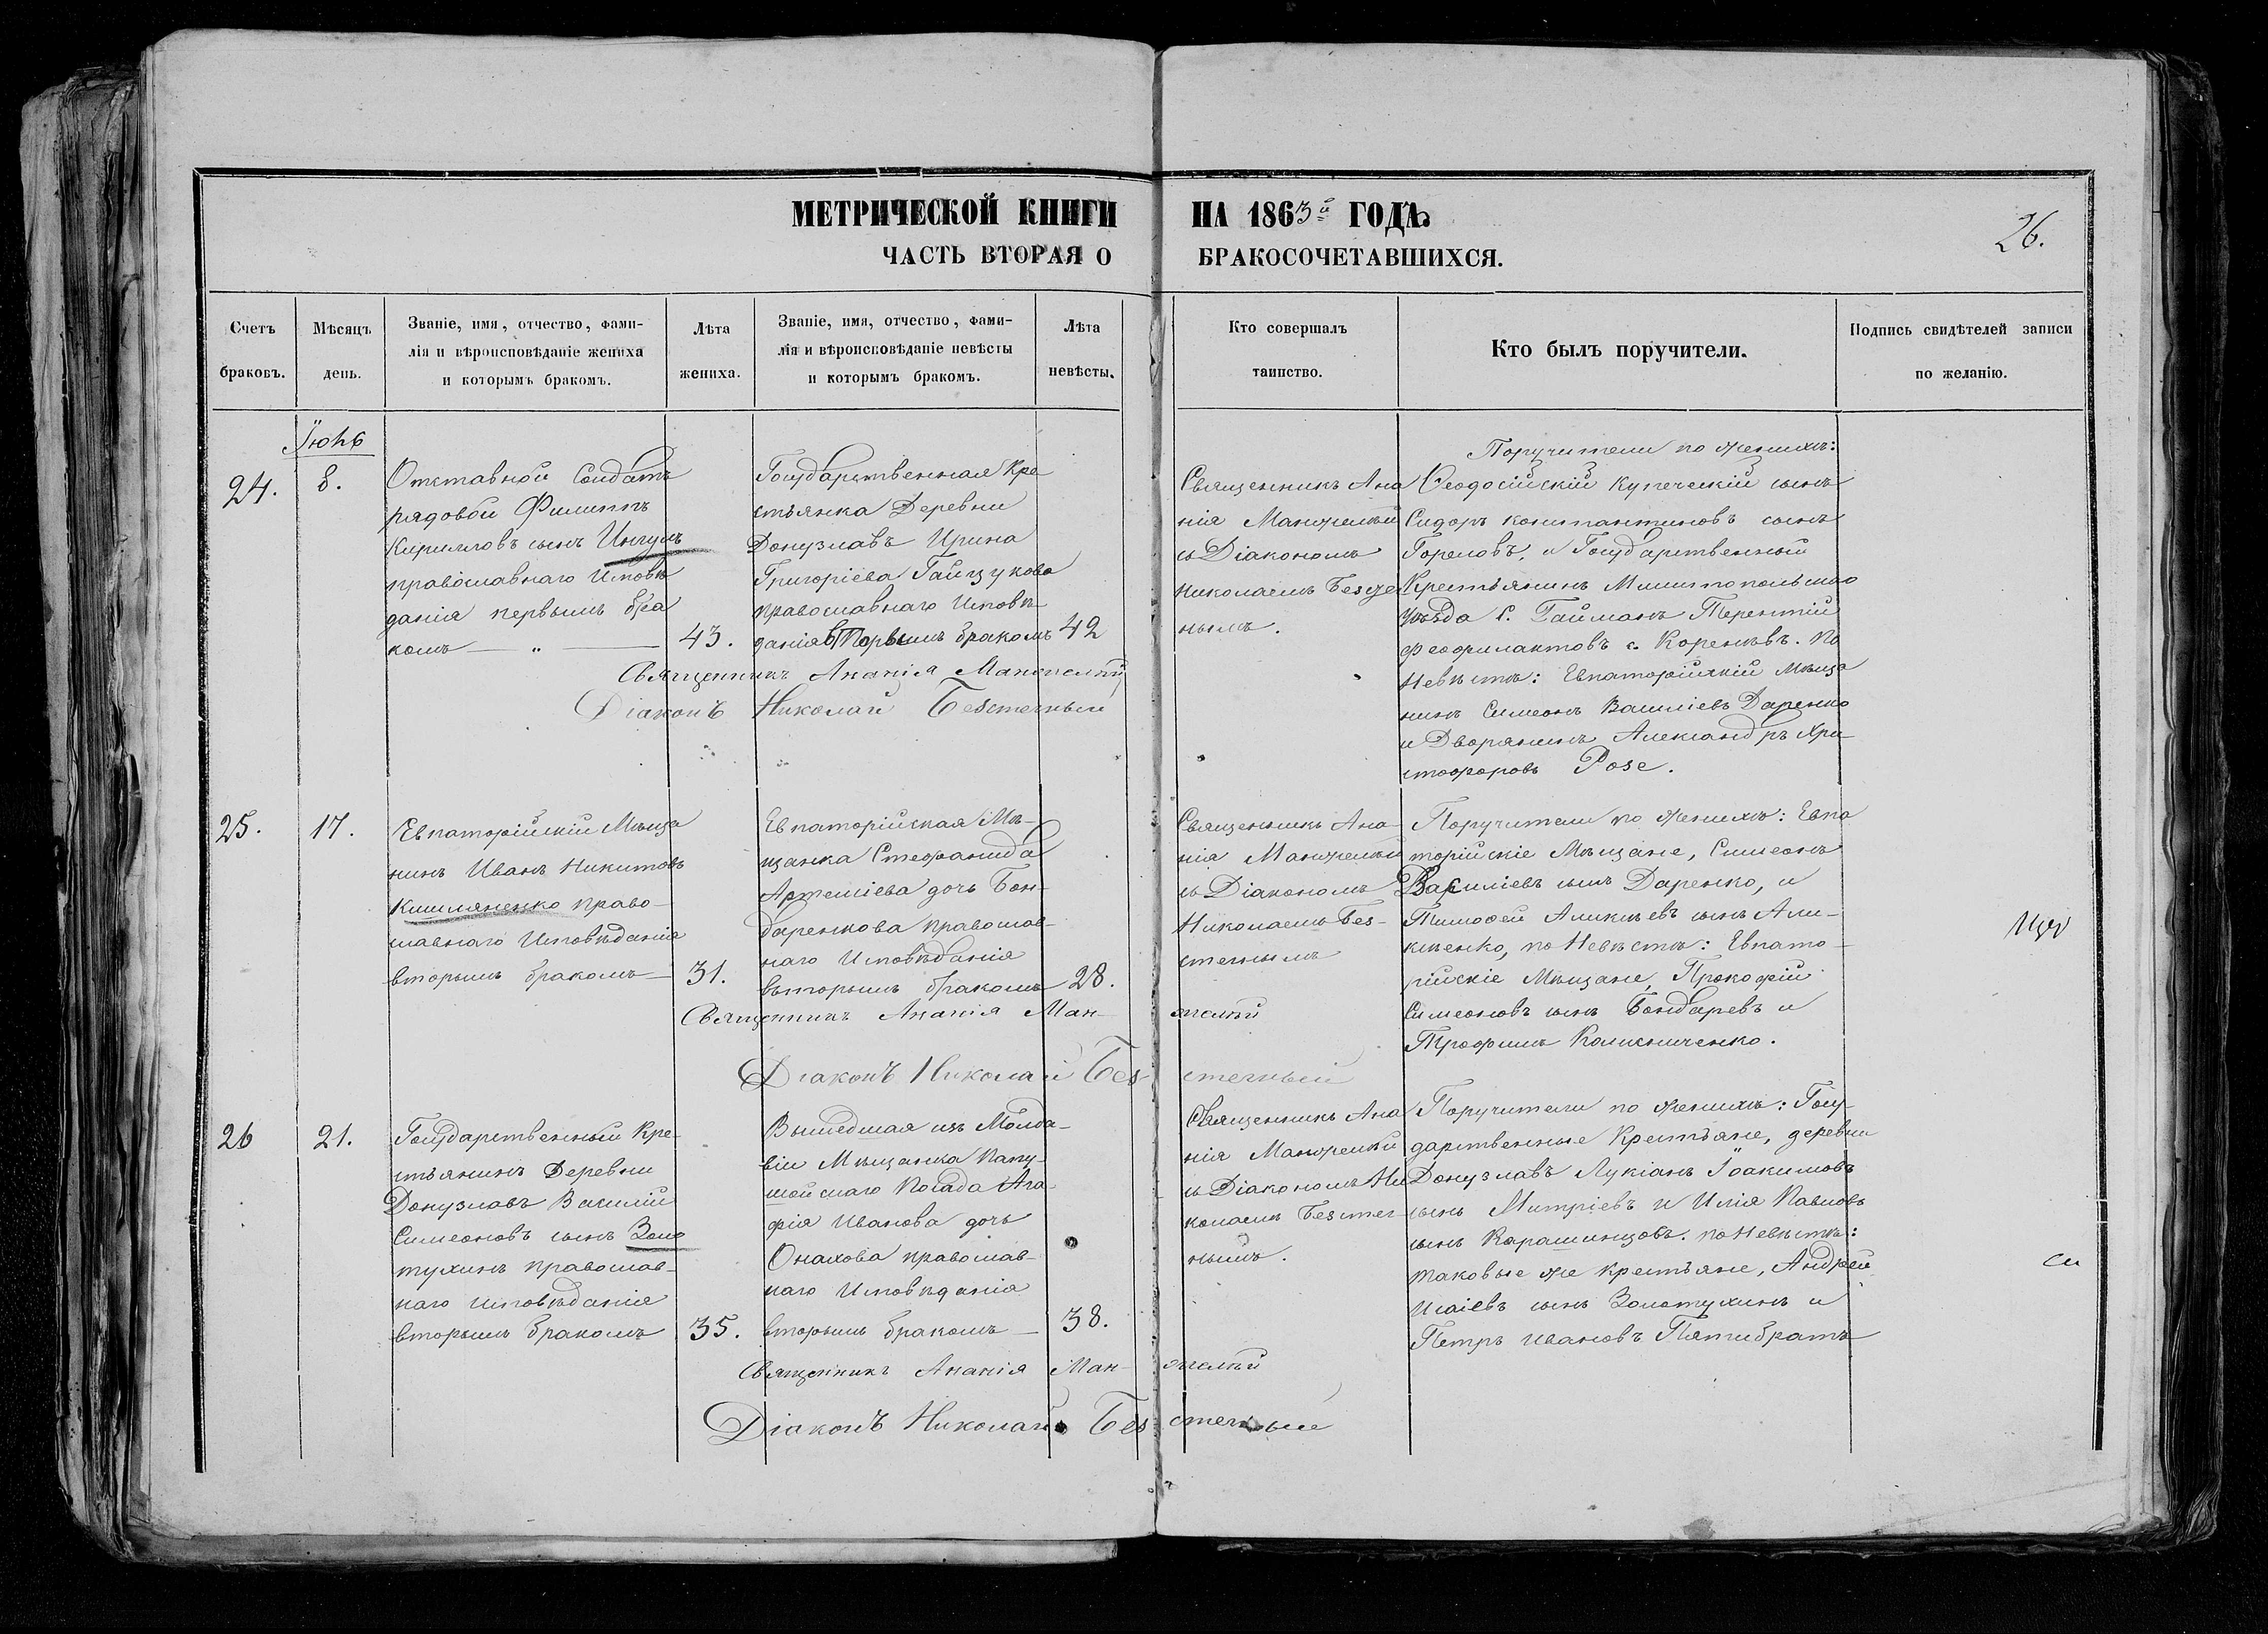 МЕТРИЧЕСКОЙ КНИГИ НА 1863й ГОДЪ
ЧАСТЬ ВТОРАЯ О БРАКОСОЧЕТАВШИХСЯ.
26.
Счетъ браковъ.
Мѣсяцъ день.
Званіе, имя, отчество, фами-
лія и вѣроисповѣданіе жениха
и которымъ бракомъ.
Лѣта жениха.
Званіе, имя, отчество, фами-
лія и вѣроисповѣданіе невѣсты
и которымъ бракомъ.
Лѣта невѣсты.
Кто совершалъ таинство.
Кто былъ поручители.
Подпись свидѣтелей записи
по желанію.
Іюнь
24.
8.
Отставной Солдатъ
рядовой Филиппъ
Кирилловъ сынъ Ингулъ
православнаго Исповѣ
данія первымъ бра
комъ — „ —
43.
Государственная Кре
стьянка Деревни
Донузлавъ Ирина
Григоріева Гайцукова
православнаго Исповѣ
данія Первымъ бракомъ
42
Священникъ Ананія
Діаконъ Николай Безстечный
Священникъ Ана
нія
съ Діакономъ
Николаемъ
нымъ.
Поручители по женихѣ:
Ѳеодосійскій купеческій сынъ
Сидоръ константиновъ сынъ
Гореловъ, и Государственный
Крестьянинъ Мелитопольскаго
уѣзда С. Гайманъ Терентій
Феофилактовъ с. Кореневъ. По
Невѣстѣ: Евпаторійскій Мѣща
нинъ Симеонъ Василіевъ Даренко
и Дворянинъ Александръ Хри-
стофоровъ Розе.
25.
17.
Евпаторійскій Мѣща
нинъ Иванъ Никитовъ
Кишляненко право-
славнаго Исповѣданія
вторымъ бракомъ —
31.
Евпаторійская Мѣ-
щанка Стефанида
Артеміева дочь Бон-
даренкова православ-
наго Исповѣданія
вторымъ бракомъ
28.
Священникъ Ананія
Діаконъ Николай Безстечный
Священникъ Ана-
нія
съ Діакономъ
Николаемъ Без-
стечнымъ
Поручители по женихѣ: Евпа
торійскіе Мѣщане, Симеонъ
Василіевъ сынъ Даренко, и
Тимофей Алексѣевъ сынъ Але-
ксѣенко, по Невѣстѣ: Евпато-
рійскіе Мѣщане, Прокофій
Симеоновъ сынъ Бондаревъ и
Трофимъ Колисниченко.
26
21.
Государственный Кре-
стьянинъ Деревни
Донузлавъ Василій
Симеоновъ сынъ Золо
тухинъ православ-
наго исповѣданія
вторымъ бракомъ
35.
Вышедшая изъ Молда-
віи Мѣщанка Папу-
шойскаго Посада Ага-
фія Иванова дочь
Онахова православ-
наго Исповѣданія
вторымъ бракомъ —
38.
Священникъ Ананія
Діаконъ Николай Безстечный
Священникъ Ана
нія
съ Діакономъ Ни
колаемъ Безстеч
нымъ.
Поручители по женихѣ: Госу-
дарственные Крестьяне, деревни
Донузлавъ Лукіанъ Іоакимовъ
сынъ Митріевъ и Илія Павловъ
сынъ Карашинцовъ. по Невѣстѣ:
таковые же крестьяне, Андрей
Исаіевъ сынъ Золотухинъ и
Петръ Ивановъ Пятибратъ